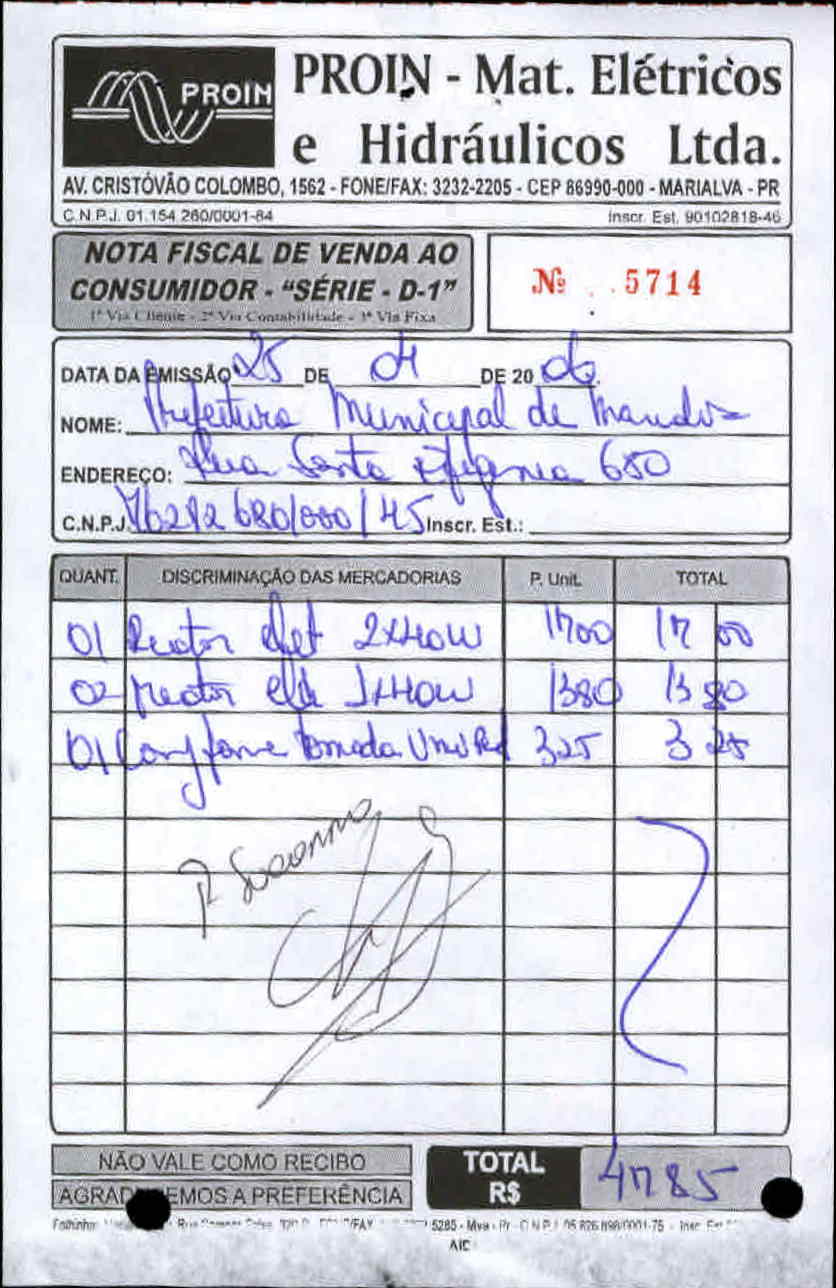 PROIN
PROIN - Mat. Elétricos
e Hidráulicos Ltda.
AV. CRISTÓVÃO COLOMBO, 1562 - FONE/FAX: 3232-2205 - CEP 86990-000 - MARIALVA - PR
C.N.P.J. 01.154.260/0001-84 Inscr. Est. 90102818-46
NOTA FISCAL DE VENDA AO
CONSUMIDOR - "SÉRIE - D-1"
1ª Via Cliente - 2ª Via Contabilidade - 3ª Via Fixa
Nº 5714
DATA DA EMISSÃO 25 DE 04 DE 20 06.
NOME: Prefeitura Municipal de
ENDEREÇO: Rua Santa Efigenia 680
C.N.P.J. 76282680/000/45 Inscr. Est.:
QUANT. DISCRIMINAÇÃO DAS MERCADORIAS P. Unit. TOTAL
01 Reator elet 2x40W 1700 17 00
02 reator ele 1x40W 1380 13 80
01 tomada 325 3 25
NÃO VALE COMO RECIBO
AGRADECEMOS A PREFERÊNCIA
TOTAL
R$ 4785
5285 - Mva - Pr - C.N.P.J. 05.826.898/0001-75